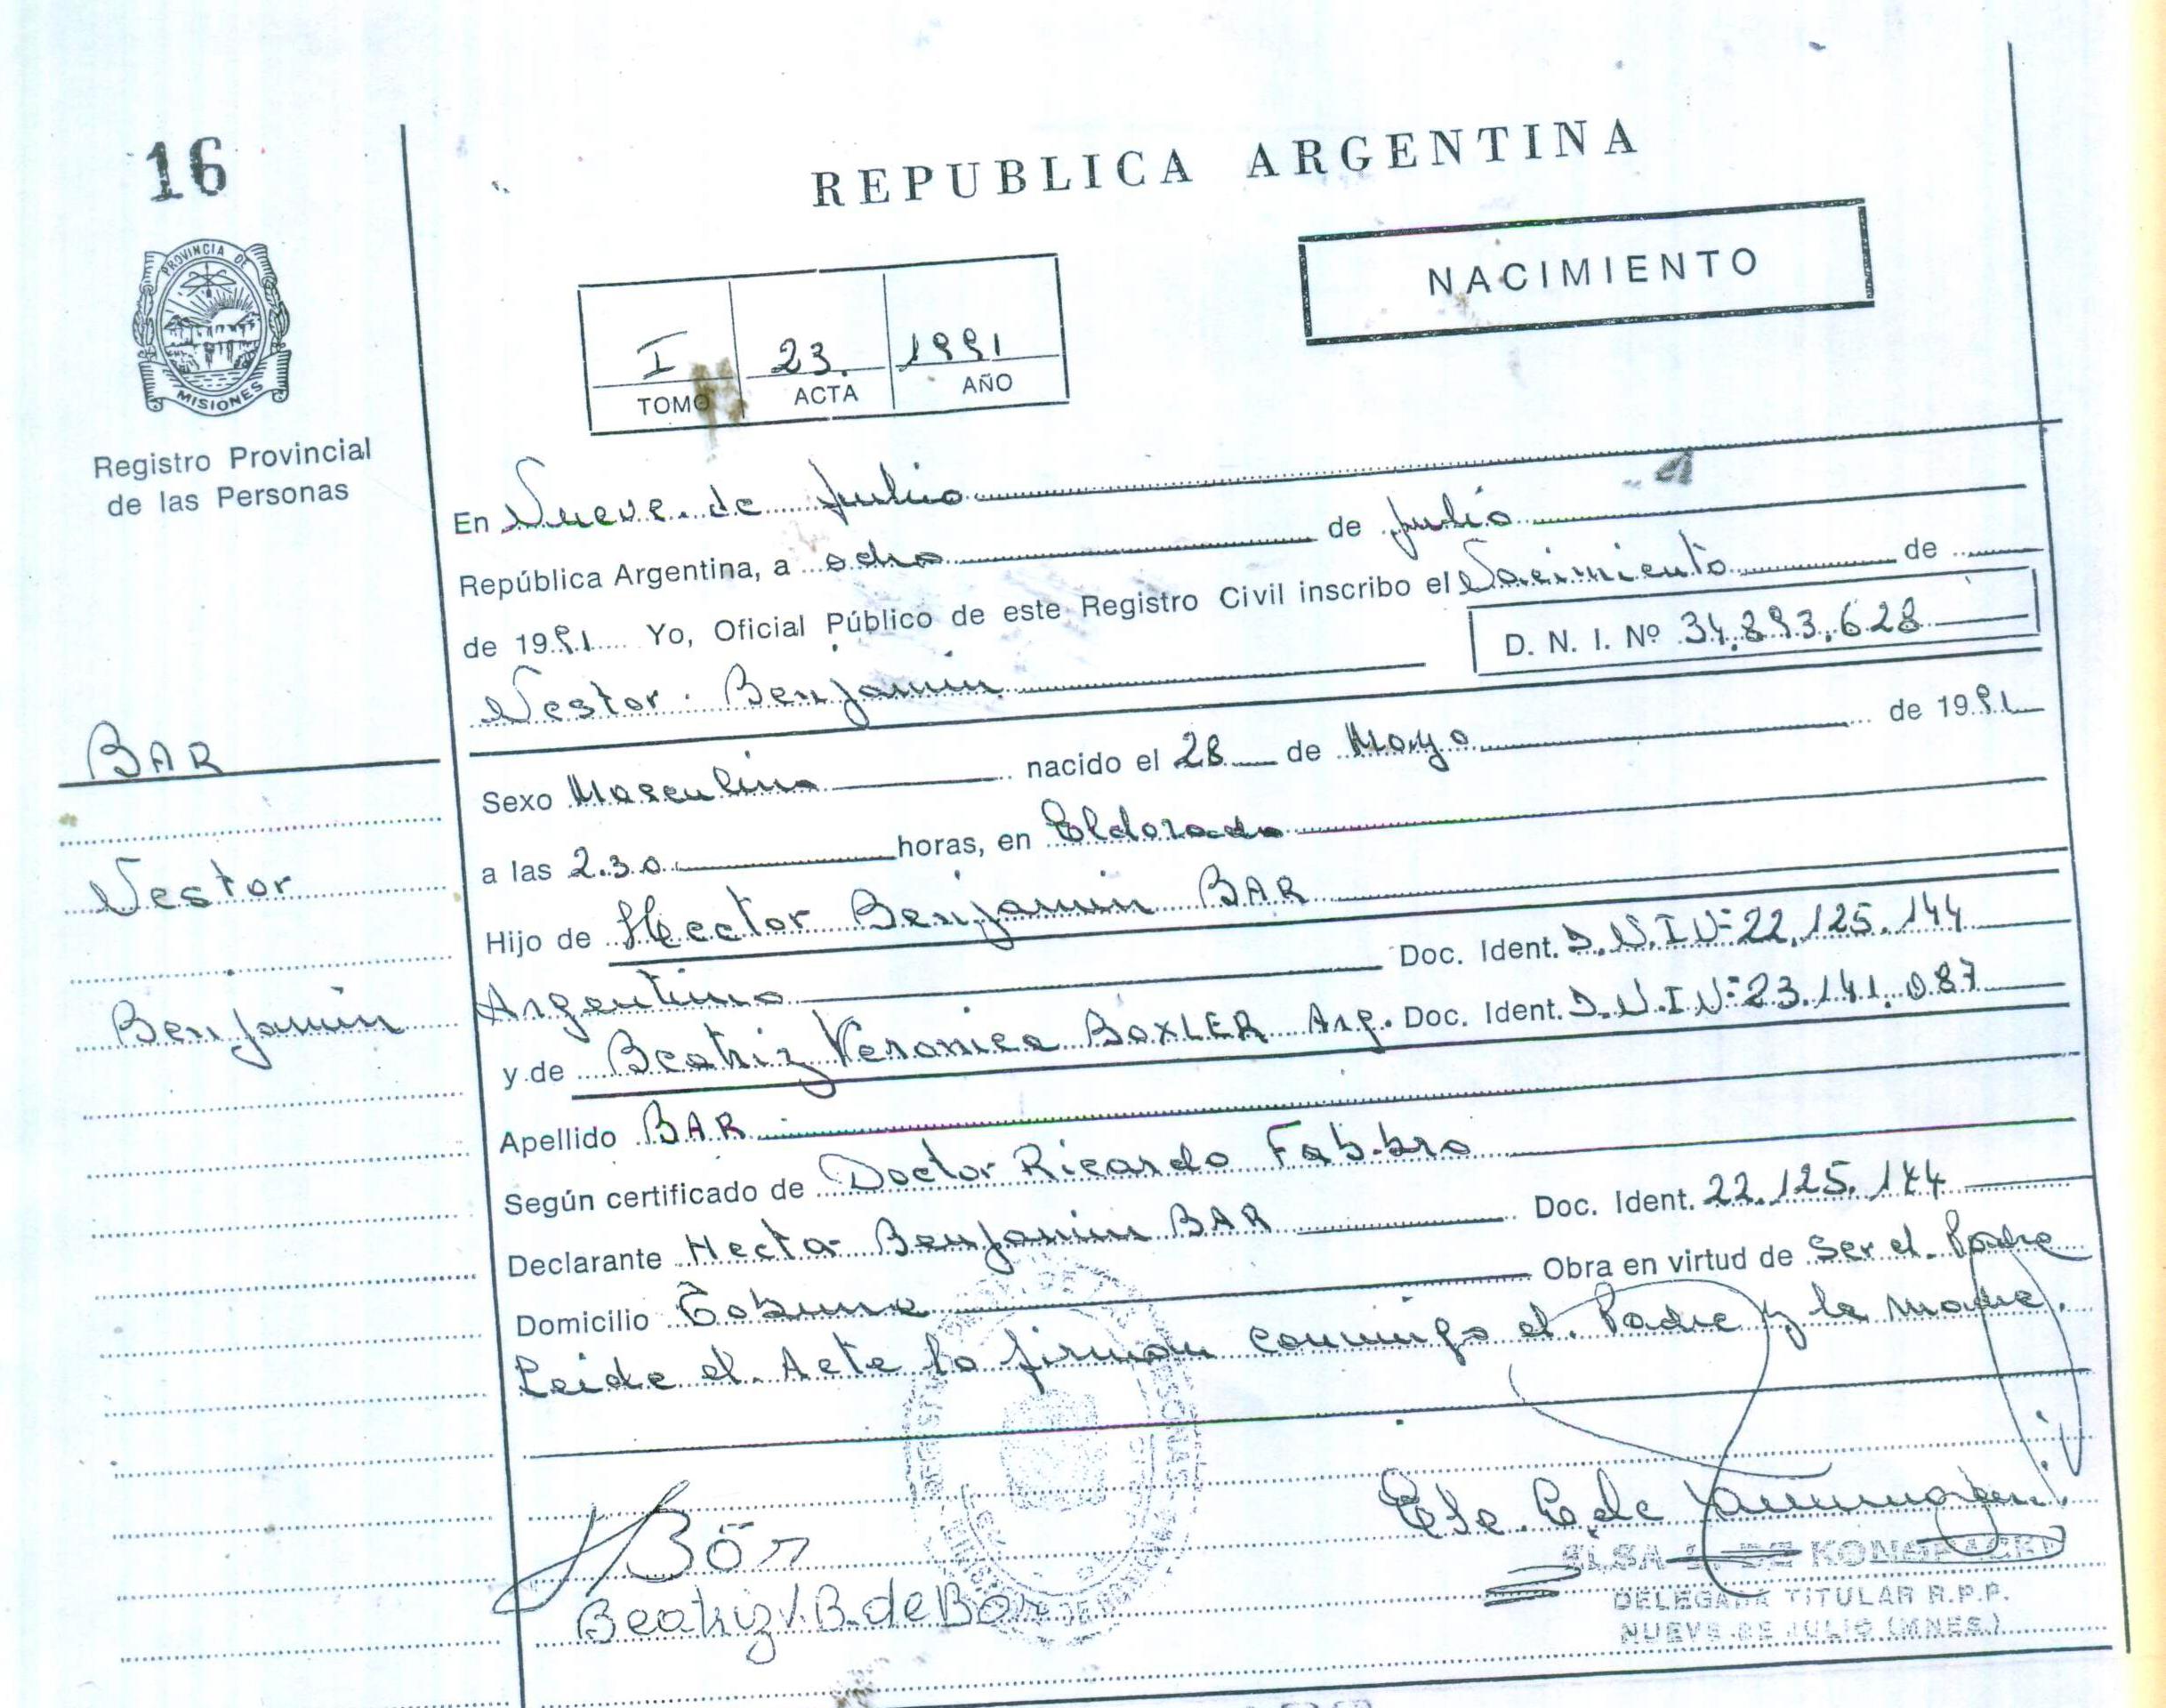 16
REPUBLICA ARGENTINA
NACIMIENTO
PROVINCIA DE
MISIONES
Registro Provincial
de las Personas
I 23. 1991
TOMO ACTA AÑO
En Nueve de Julio
República Argentina, a ocho de Julio
de 1991 Yo, Oficial Público de este Registro Civil inscribo el Nacimiento de
Nestor Benjamin D. N. I. Nº 34.893.628
BAR
Nestor
Benjamin
Sexo Masculino nacido el 28 de Mayo de 1991
a las 2.30 horas, en Eldorado
Hijo de Hector Benjamin BAR
Argentino Doc. Ident. D.N.I Nº 22.125.144
y de Beatriz Veronica BOXLER Arg. Doc. Ident. D.N.I Nº 23.141.087
Apellido BAR
Según certificado de Doctor Ricardo Fabbro
Declarante Hector Benjamin BAR Doc. Ident. 22.125.144
Domicilio Tobuna Obra en virtud de Ser el Padre
Leida el Acta la firman conmigo el Padre y la madre.
HBár
Beatriz V.B. de Bár
ELSA DE
DELEGADA TITULAR R.P.P.
NUEVE DE JULIO (MNES.)